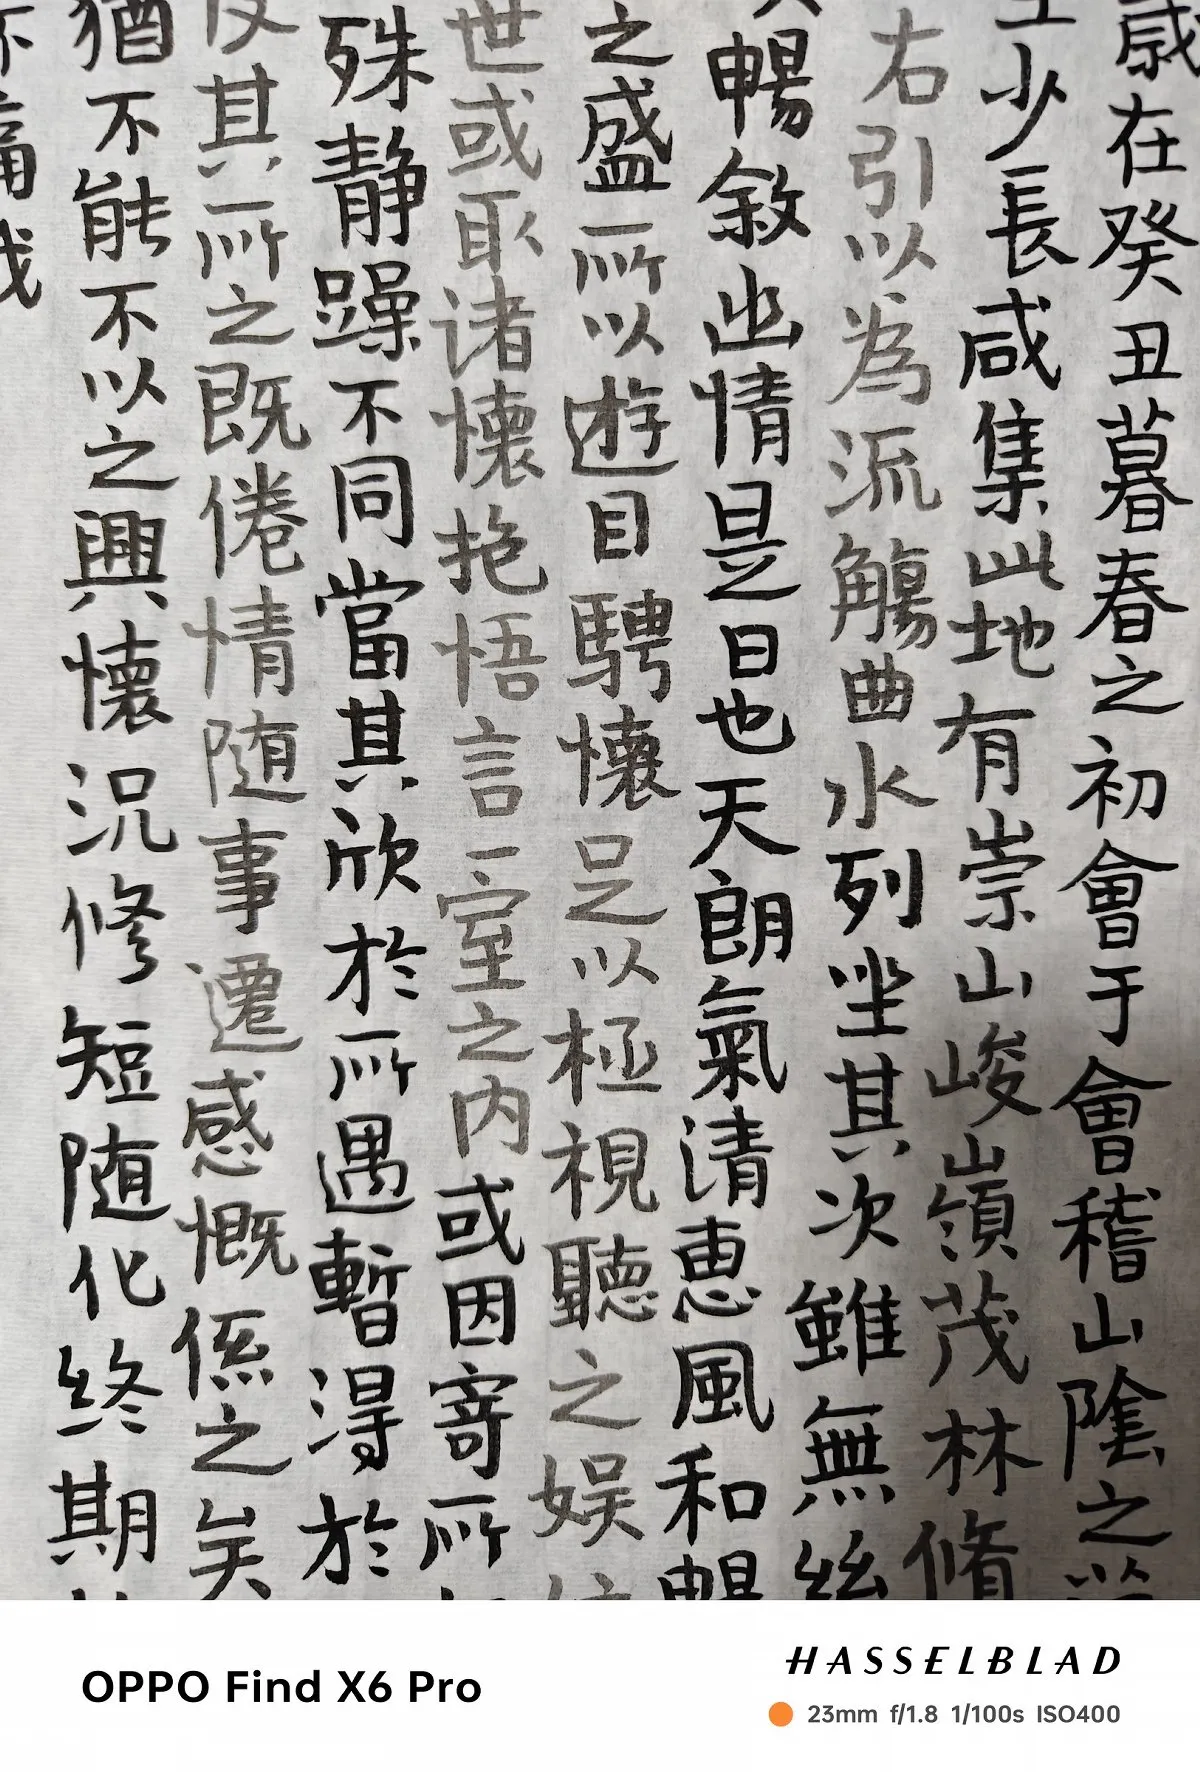 歲在癸丑暮春之初會于會稽山陰之
少長咸集此地有崇山峻嶺茂林脩
右引以為流觴曲水列坐其次雖無絲
暢敘幽情是日也天朗氣清恵風和暢
之盛所以遊目騁懷足以極視聽之娱
世或取诸懷抱悟言一室之内或因寄所
殊静躁不同當其欣於所遇暫得於
及其所之既倦情随事遷感慨係之矣
猶不能不以之興懷況修短随化終期
OPPO Find X6 Pro
HASSELBLAD
23mm f/1.8 1/100s ISO400